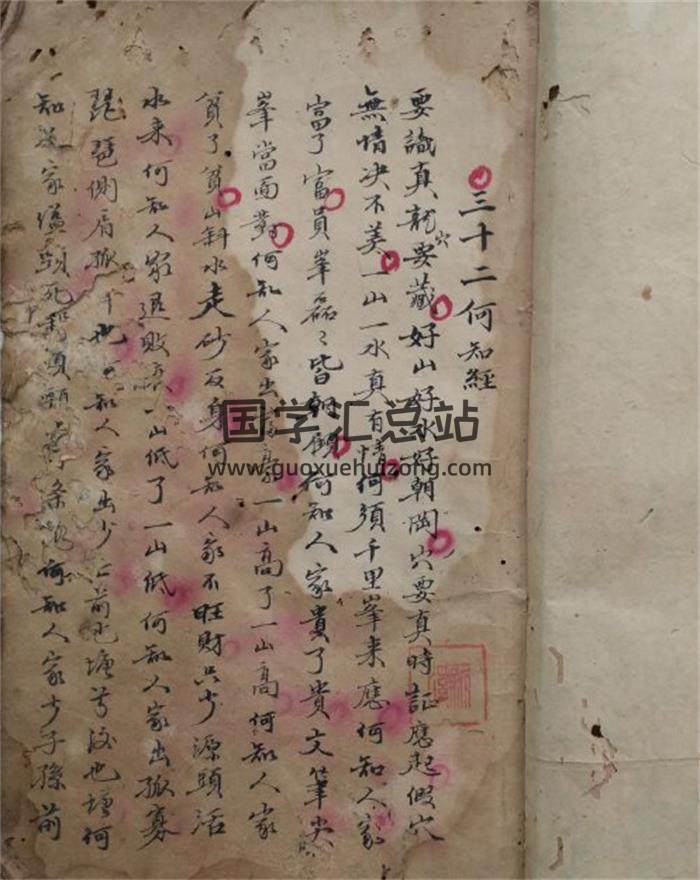 三十二何知經
要識真龍要藏穴好山好水好朝岡穴要真時証應起假穴
無情决不美一山一水真有情何須千里峯来應何知人家
富了富員峯磊〻皆朝顧何知人家貴了貴文筆尖
峯當面對何知人家出一山高了一山高何知人家
貧了貧山斜水走砂反身何知人家不旺財只少源頭活
水来何知人家退敗一山低了一山低何知人家出孤寡
琵琶側肩孤也知人家出少亡前也塘并後也塘何
知人家缢死頸上有條何知人家少子孫前
国学汇总站
www.guoxuehuizong.com